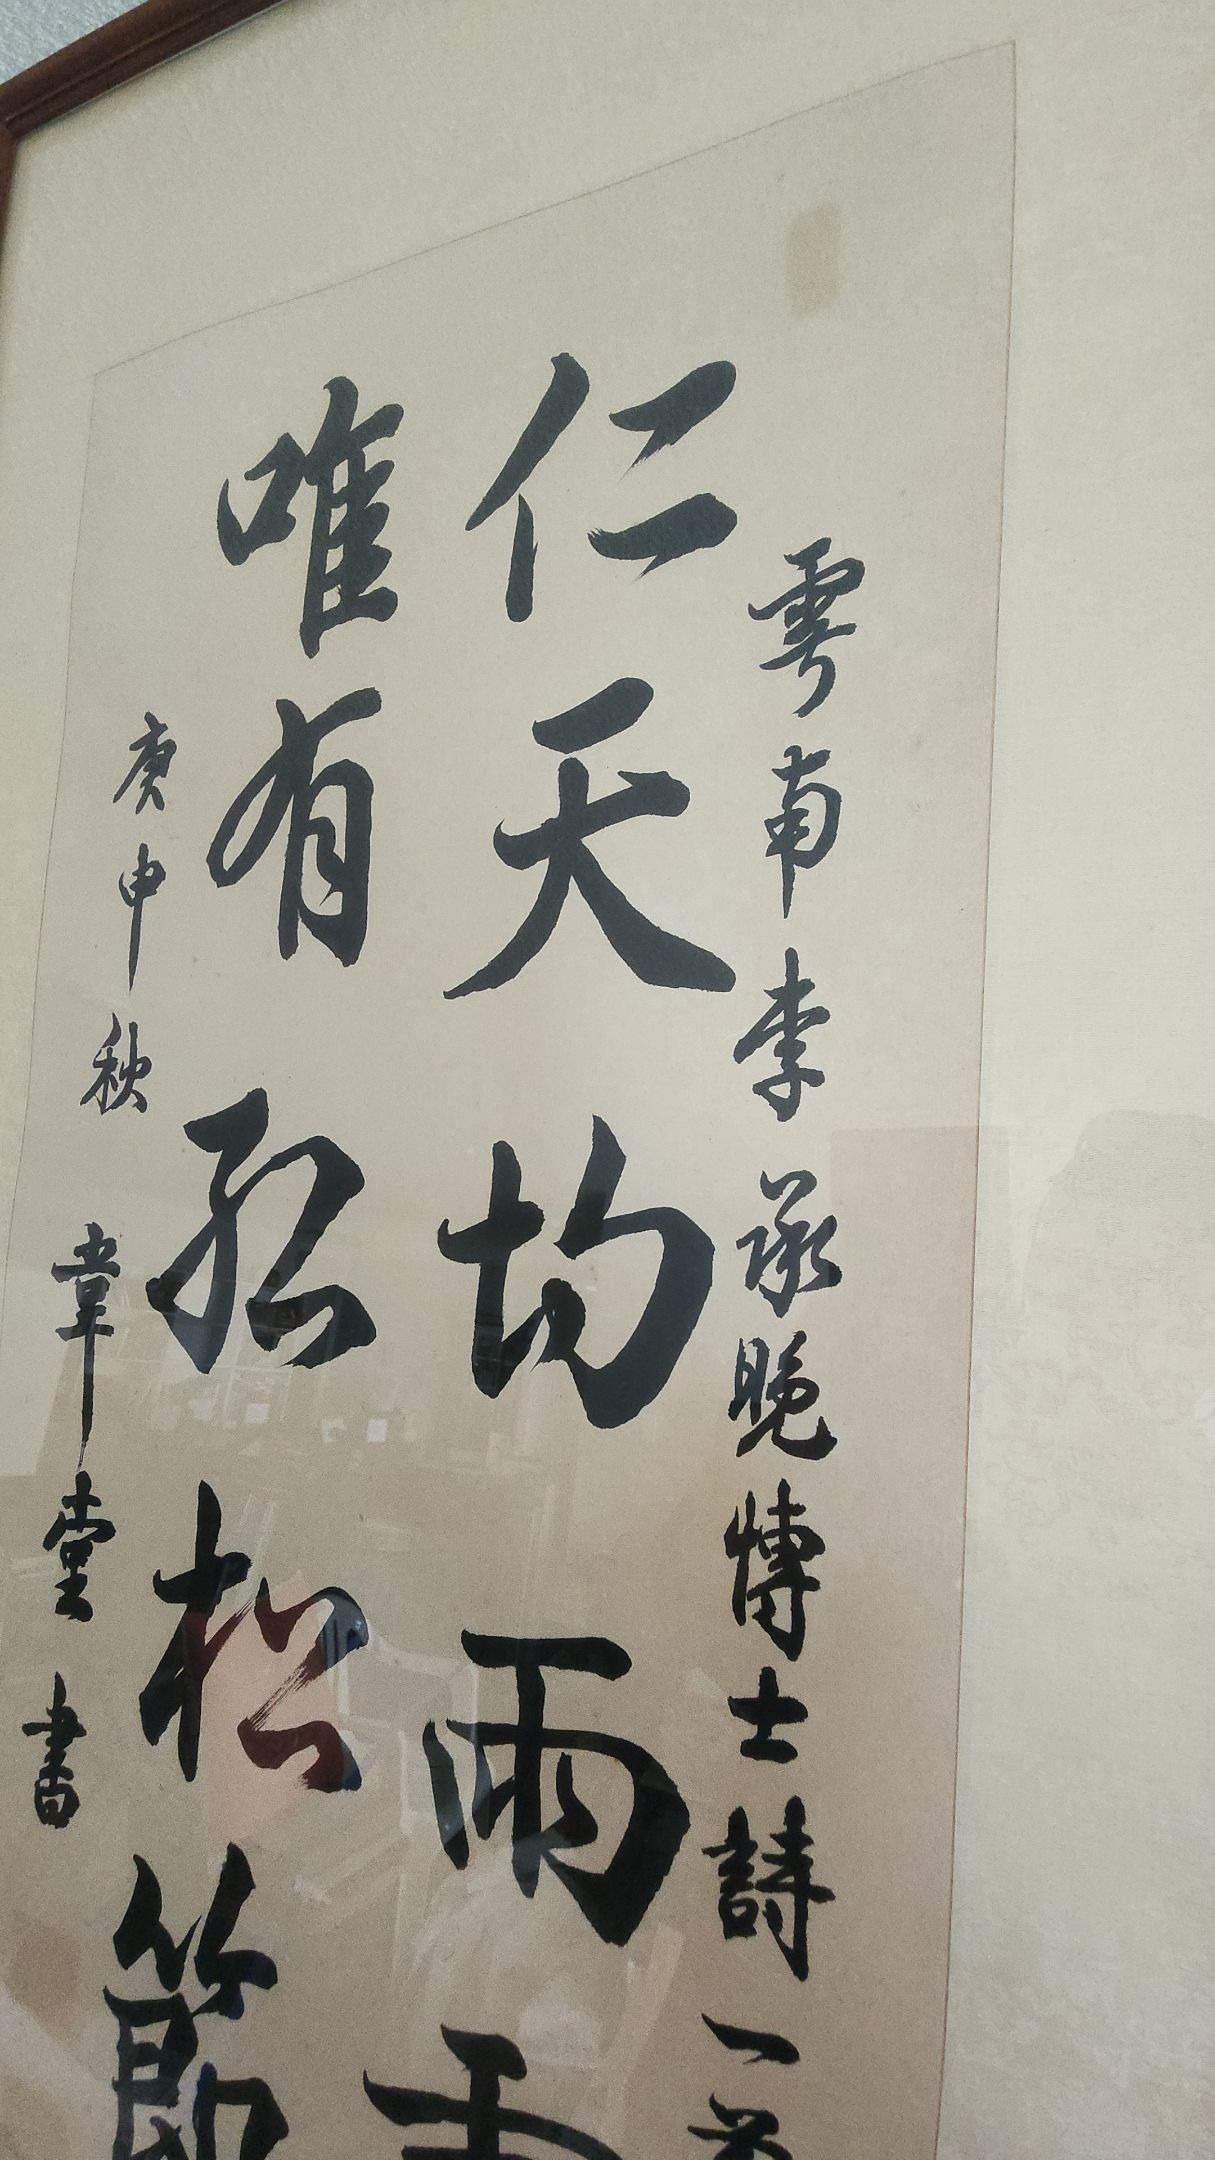 雩南李承晚博士詩一首
仁天均雨
唯有孤松節
庚申秋 韋堂書